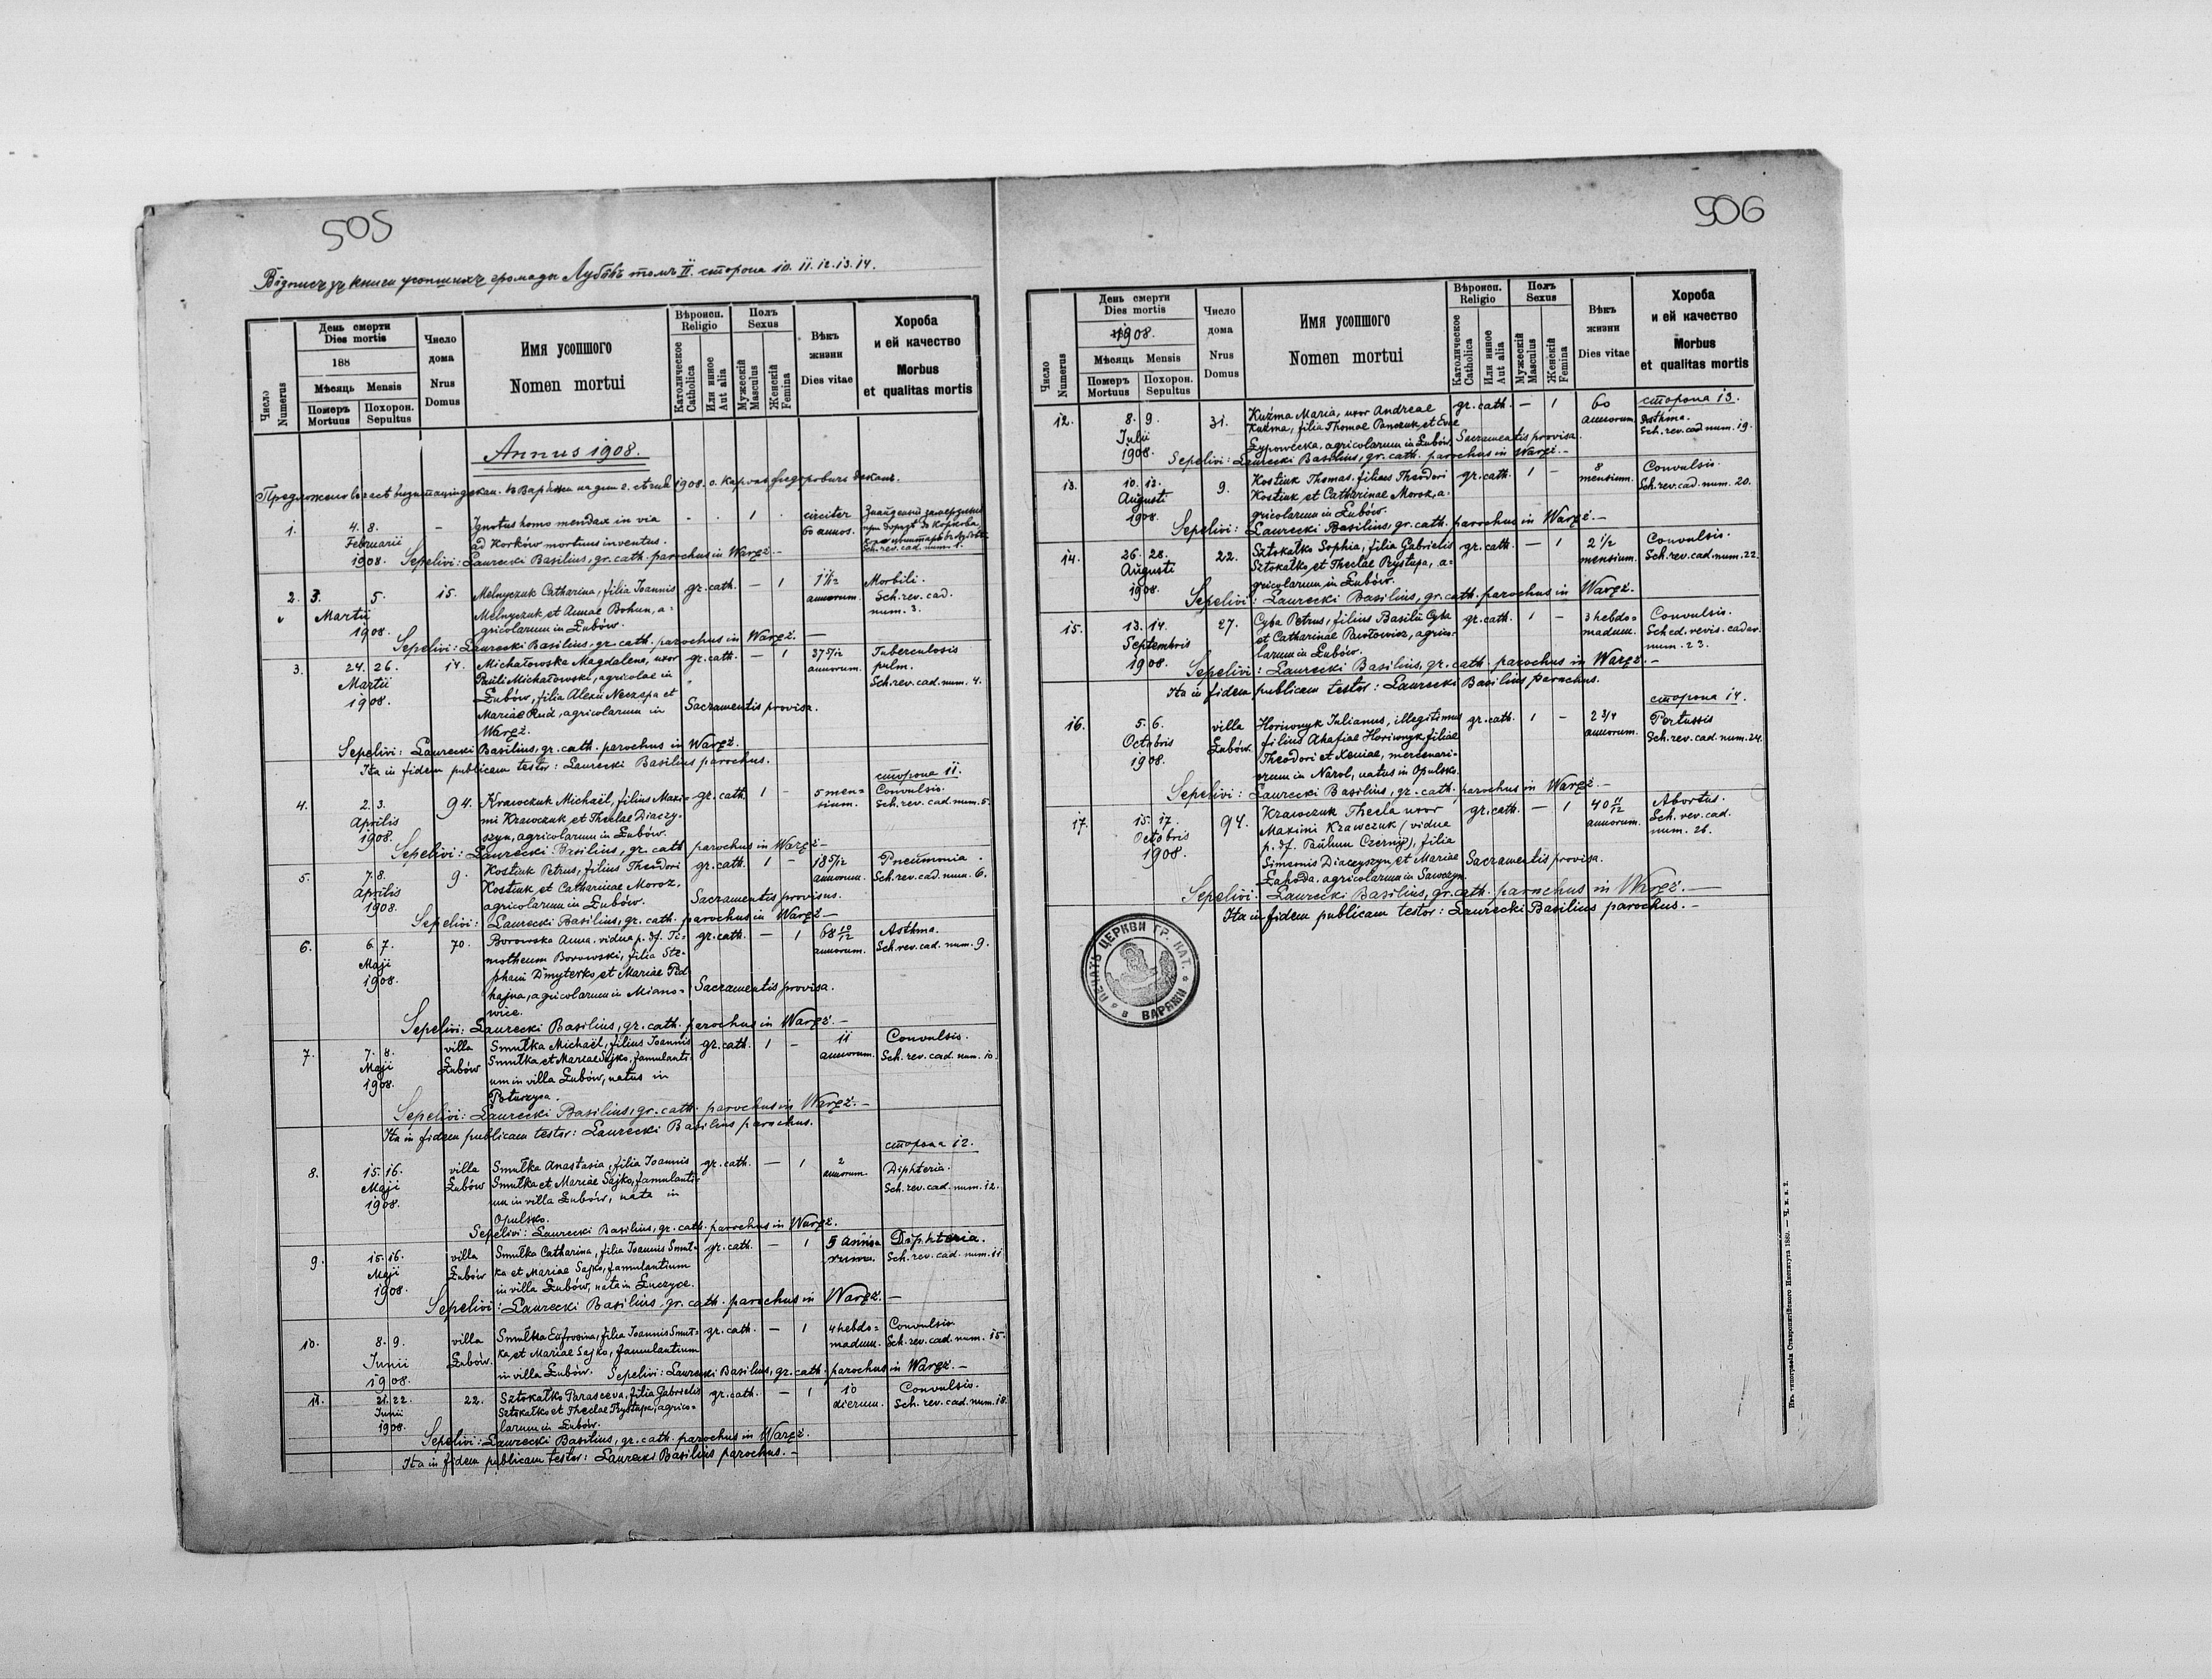 505
Відпис зъ книги усопшихъ громады Лубôвъ томъ II. сторона 10. 11. 12. 13. 14.
Число Numerus
День смерти Dies mortis
188
Мѣсяць Mensis
Померъ Mortuus
Похорон. Sepultus
Число дома Nrus Domus
Имя усопшого
Nomen mortui
Вѣроисп. Religio
Католическое Catholica
Или инное Aut alia
Полъ Sexus
Мужескій Masculus
Женскій Femina
Вѣкъ жизни Dies vitae
Хороба и ей качество
Morbus et qualitas mortis
Annus 1908.
1. 4. 8. – Ignotus homo mendax in via . . 1 . circiter
Februarii ad Korków mortuus inventus. 60 annos.
1908. Sepelivi: Laurecki Basilius, gr. cath. parochus in Waręż. – Sch. rev. cad. num. 1.
2. 3. 5. 15. Melnyczuk Catharina, filia Joannis gr. cath. – 1 1 1/12 Morbili.
Martii Melnyczuk et Annae Bohun, a= annorum. Sch. rev. cad.
1908. gricolarum in Łubów. num. 3.
Sepelivi: Laurecki Basilius, gr. cath. parochus in Waręż. –
3. 24. 26. 14. Michałowska Magdalena, uxor gr. cath. – 1 37 5/12 Tuberculosis
Martii Pauli Michałowski, agricolae in annorum. pulm.
1908. Łubów, filia Alexii Neczepa et Sch. rev. cad. num. 4.
Mariae Rud, agricolarum in Sacramentis provisa.
Waręż.
Sepelivi: Laurecki Basilius, gr. cath. parochus in Waręż.
Ita in fidem publicam testor: Laurecki Basilius parochus.
сторона 11.
4. 2. 3. 94. Krawczuk Michaël, filius Maxi= gr. cath. 1 – 5 men= Convulsio.
Aprilis mi Krawczuk et Theclae Diaczy= sium. Sch. rev. cad. num. 5.
1908. szyn, agricolarum in Łubów.
Sepelivi: Laurecki Basilius, gr. cath parochus in Waręż –
5. 7. 8. 9. Kostiuk Petrus, filius Theodori gr. cath. 1 – 18 5/12 Pneumonia.
Aprilis Kostiuk et Catharinae Moroz, annorum. Sch. rev. cad. num. 6.
1908. agricolarum in Łubów. Sacramentis provisus.
Sepelivi: Laurecki Basilius, gr. cath. parochus in Waręż –
6. 6. 7. 70. Borowska Anna. vidua p. df. Ti= gr. cath. – 1 68 10/12 Asthma.
Maji motheum Borowski, filia Ste= annorum. Sch. rev. cad. num. 9.
1908. phani Dmyterko et Mariae Pid
hajna, agricolarum in Miano= Sacramentis provisa.
wice.
Sepelivi: Laurecki Basilius, gr. cath. parochus in Waręż. –
7. 7. 8. villa Smułka Michaël, filius Joannis gr. cath. 1 – 11 Convulsio.
Maji Łubów Smułka et Mariae Sajko, famulanti annorum. Sch. rev. cad. num. 10.
1908. um in villa Łubów, natus in
Poturzyca.
Sepelivi: Laurecki Basilius, gr. cath. parochus in Waręż. –
Ita in fidem publicam testor: Laurecki Basilius parochus.
сторона 12.
8. 15. 16. villa Smułka Anastasia, filia Joannis gr. cath. – 1 2 Diphteria.
Maji Łubów Smułka et Mariae Sajko, famulanti= annorum. Sch. rev. cad. num. 12.
1908. um in villa Łubów, nata in
Opulsko.
Sepelivi: Laurecki Basilius, gr. cath. parochus in Waręż.
9. 15. 16. villa Smułka Catharina, filia Joannis Smuł= gr. cath. – 1 5 Diphteria.
Maji Łubów ka et Mariae Sajko, famulantium Sch. rev. cad. num. 11.
1908. in villa Łubów, nata in Łuczyce.
Sepelivi: Laurecki Basilius, gr. cath. parochus in Waręż. –
10. 8. 9. villa Smułka Eufrosina, filia Joannis Smuł= gr. cath. – 1 4 hebdo= Convulsio.
Junii Łubów. ka et Mariae Sajko, famulantium madum. Sch. rev. cad. num. 15.
1908. in villa Łubów. Sepelivi: Laurecki Basilius, gr. cath. parochus in Waręż. –
11. 21. 22. 22. Sztokałko Parasceva, filia Gabrielis gr. cath. – 1 10 Convulsio.
Junii Sztokałko et Theclae Prystupa, agrico= dierum. Sch. rev. cad. num. 18.
1908. larum in Łubów.
Sepelivi: Laurecki Basilius, gr. cath. parochus in Waręż.
Ita in fidem publicam testor: Laurecki Basilius parochus. –
506
Число Numerus
День смерти Dies mortis
1908.
Мѣсяць Mensis
Померъ Mortuus
Похорон. Sepultus
Число дома Nrus Domus
Имя усопшого
Nomen mortui
Вѣроисп. Religio
Католическое Catholica
Или инное Aut alia
Полъ Sexus
Мужескій Masculus
Женскій Femina
Вѣкъ жизни Dies vitae
Хороба и ей качество
Morbus et qualitas mortis
сторона 13.
12. 8. 9. 31. Kuźma Maria, uxor Andreae gr. cath. – 1 60 Asthma.
Julii Kuźma, filia Thomae Panczuk et Evae annorum. Sch. rev. cad. num. 19.
1908. Łypowecka, agricolarum in Łubów. Sacramentis provisa.
Sepelivi: Laurecki Basilius, gr. cath. parochus in Waręż. –
13. 10. 12. 9. Kostiuk Thomas, filius Theodori gr. cath. 1 – 8 Convulsio.
Augusti Kostiuk et Catharinae Moroz, a= mensium. Sch. rev. cad. num. 20.
1908. gricolarum in Łubów.
Sepelivi: Laurecki Basilius, gr. cath. parochus in Waręż. –
14. 26. 28. 22. Sztokałko Sophia, filia Gabrielis gr. cath. – 1 2 1/2 Convulsio.
Augusti Sztokałko et Theclae Prystupa, a= mensium. Sch. rev. cad. num. 22.
1908. gricolarum in Łubów.
Sepelivi: Laurecki Basilius, gr. cath. parochus in Waręż.
15. 13. 14. 27. Cyba Petrus, filius Basilii Cyba gr. cath. 1 – 3 hebdo= Convulsio.
Septembris et Catharinae Pawłowicz, agrico= madum. Sched. revis. cadav.
1908. larum in Łubów. num. 23.
Sepelivi: Laurecki Basilius, gr. cath. parochus in Waręż. –
Ita in fidem publicam testor: Laurecki Basilius parochus.
сторона 14.
16. 5. 6. villa Horiwnyk Julianus, illegitimus gr. cath. 1 – 2 3/4 Pertussis
Octobris Łubów. filius Ahafiae Horiwnyk, filiae annorum. Sch. rev. cad. num. 24.
1908. Theodori et Xeniae, mercenari=
orum in Narol, natus in Opulsko.
Sepelivi: Laurecki Basilius, gr. cath. parochus in Waręż. –
17. 15. 17. 94. Krawczuk Thecla uxor gr. cath. – 1 40 11/12 Abortus.
Octobris Maximi Krawczuk (vidua annorum. Sch. rev. cad.
1908. p. df. Paulum Czernij), filia num. 26.
Simeonis Diaczyszyn et Mariae Sacramentis provisa.
Łahoda, agricolarum in Sawczyn.
Sepelivi: Laurecki Basilius, gr. cath. parochus in Waręż. –
Ita in fidem publicam testor: Laurecki Basilius parochus. –
ПЕЧАТЬ ЦЕРКВИ ГР. КАТ. в ВАРЯЖИ
Изъ типографіи Ставропигійского Института 1889. – Ч. к. в. 2.